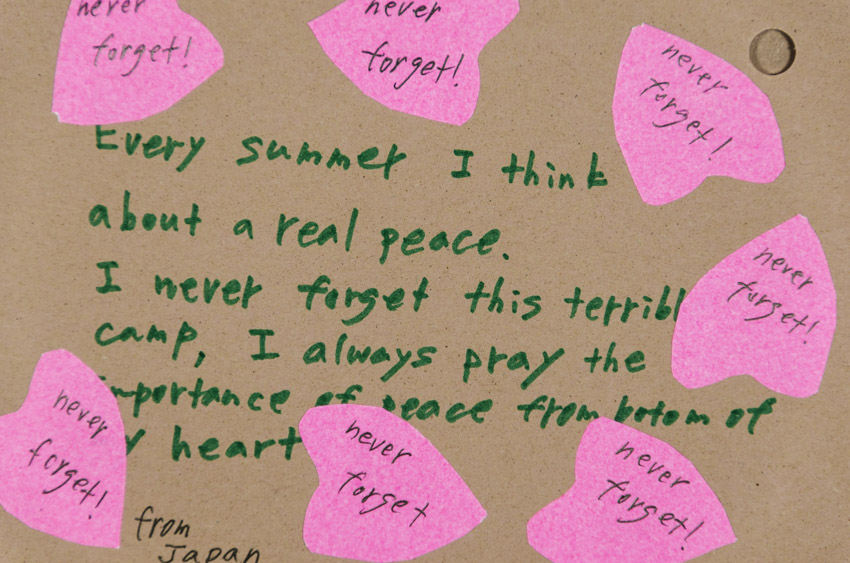 never
forget!
never
forget!
never
forget!
Every summer I think
about a real peace.
I never forget this terribl
camp, I always pray the
importance of peace from botom of
y heart
never
forget!
never
forget!
never
forget
never
forget!
from
Japan